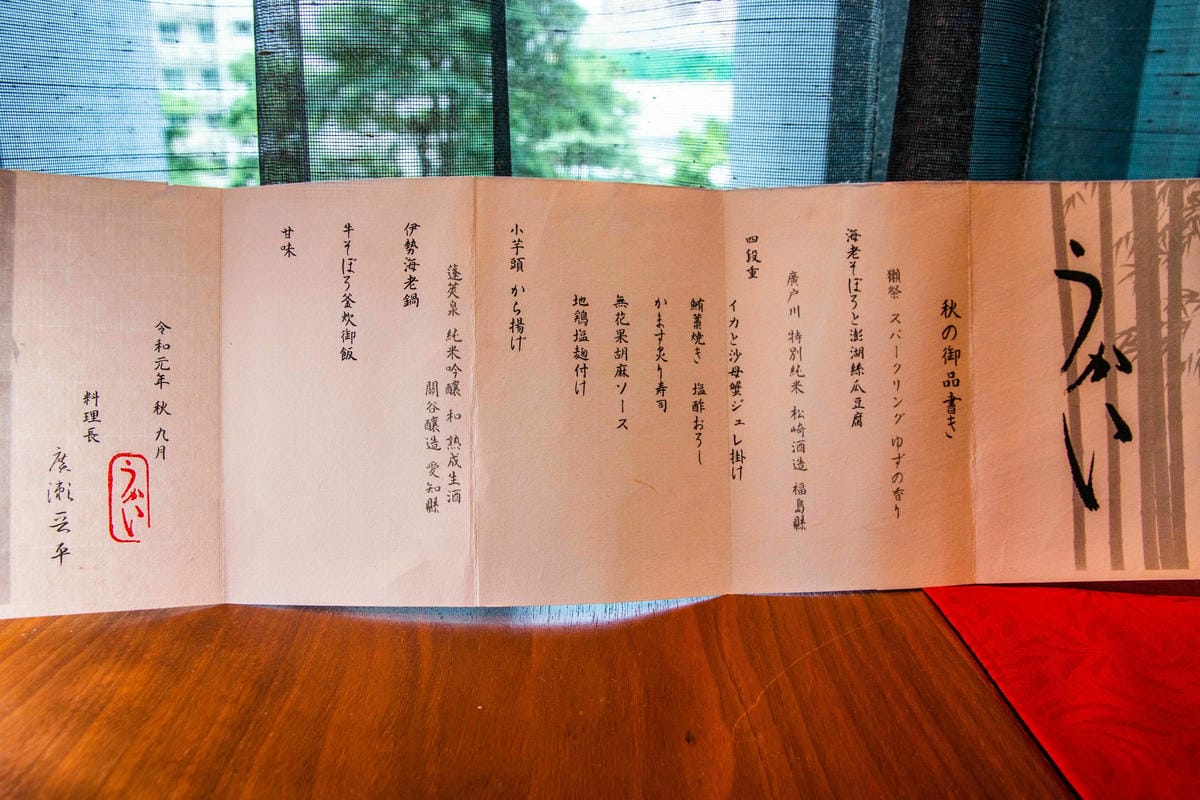 うかい
秋の御品書き
獺祭 スパークリング ゆずの香り
海老そぼろと澎湖絲瓜豆腐
廣戸川 特別純米 松崎酒造 福島縣
四段重
イカと沙母蟹ジュレ掛け
鮪蓄焼き 塩酢おろし
かます炙り寿司
無花果胡麻ソース
地鶏塩麹付け
小芋頭 から揚げ
蓬莱泉 純米吟醸 和 熟成生酒
関谷醸造 愛知縣
伊勢海老鍋
牛そぼろ釜炊御飯
甘味
令和元年 秋 九月
料理長
うかい
廣瀬 平